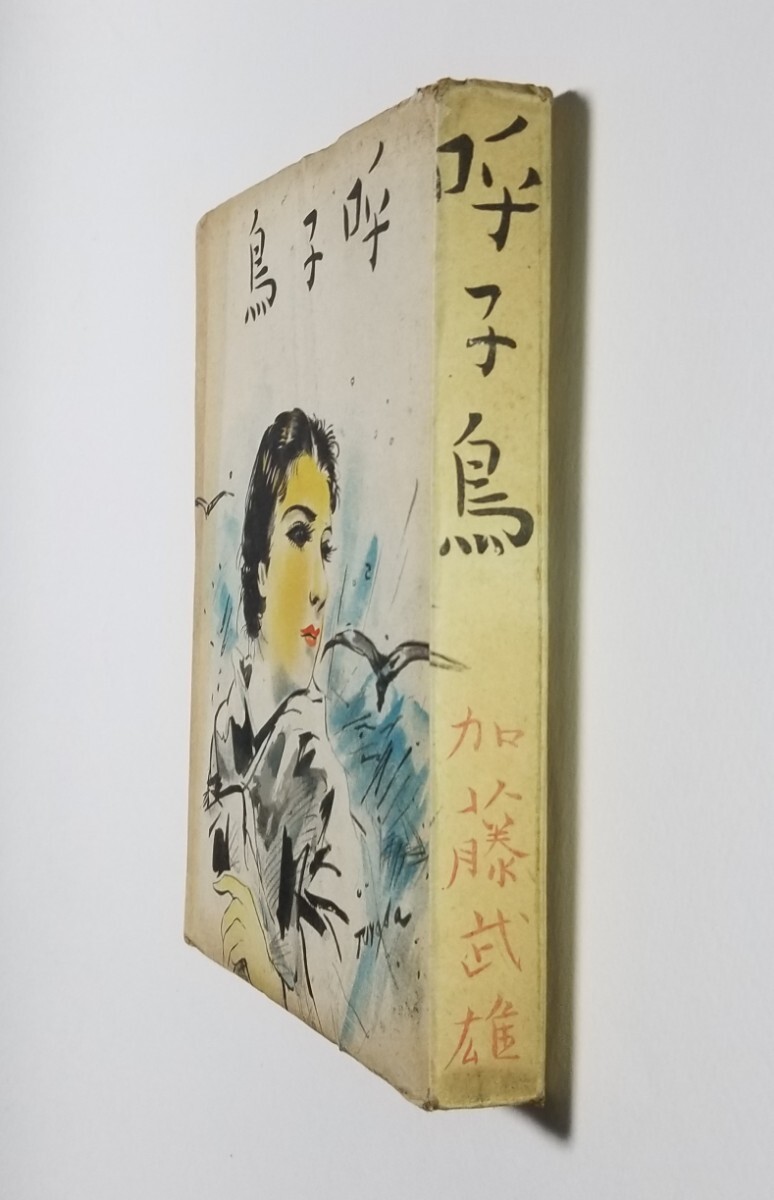 呼子鳥
呼子鳥
加藤武雄